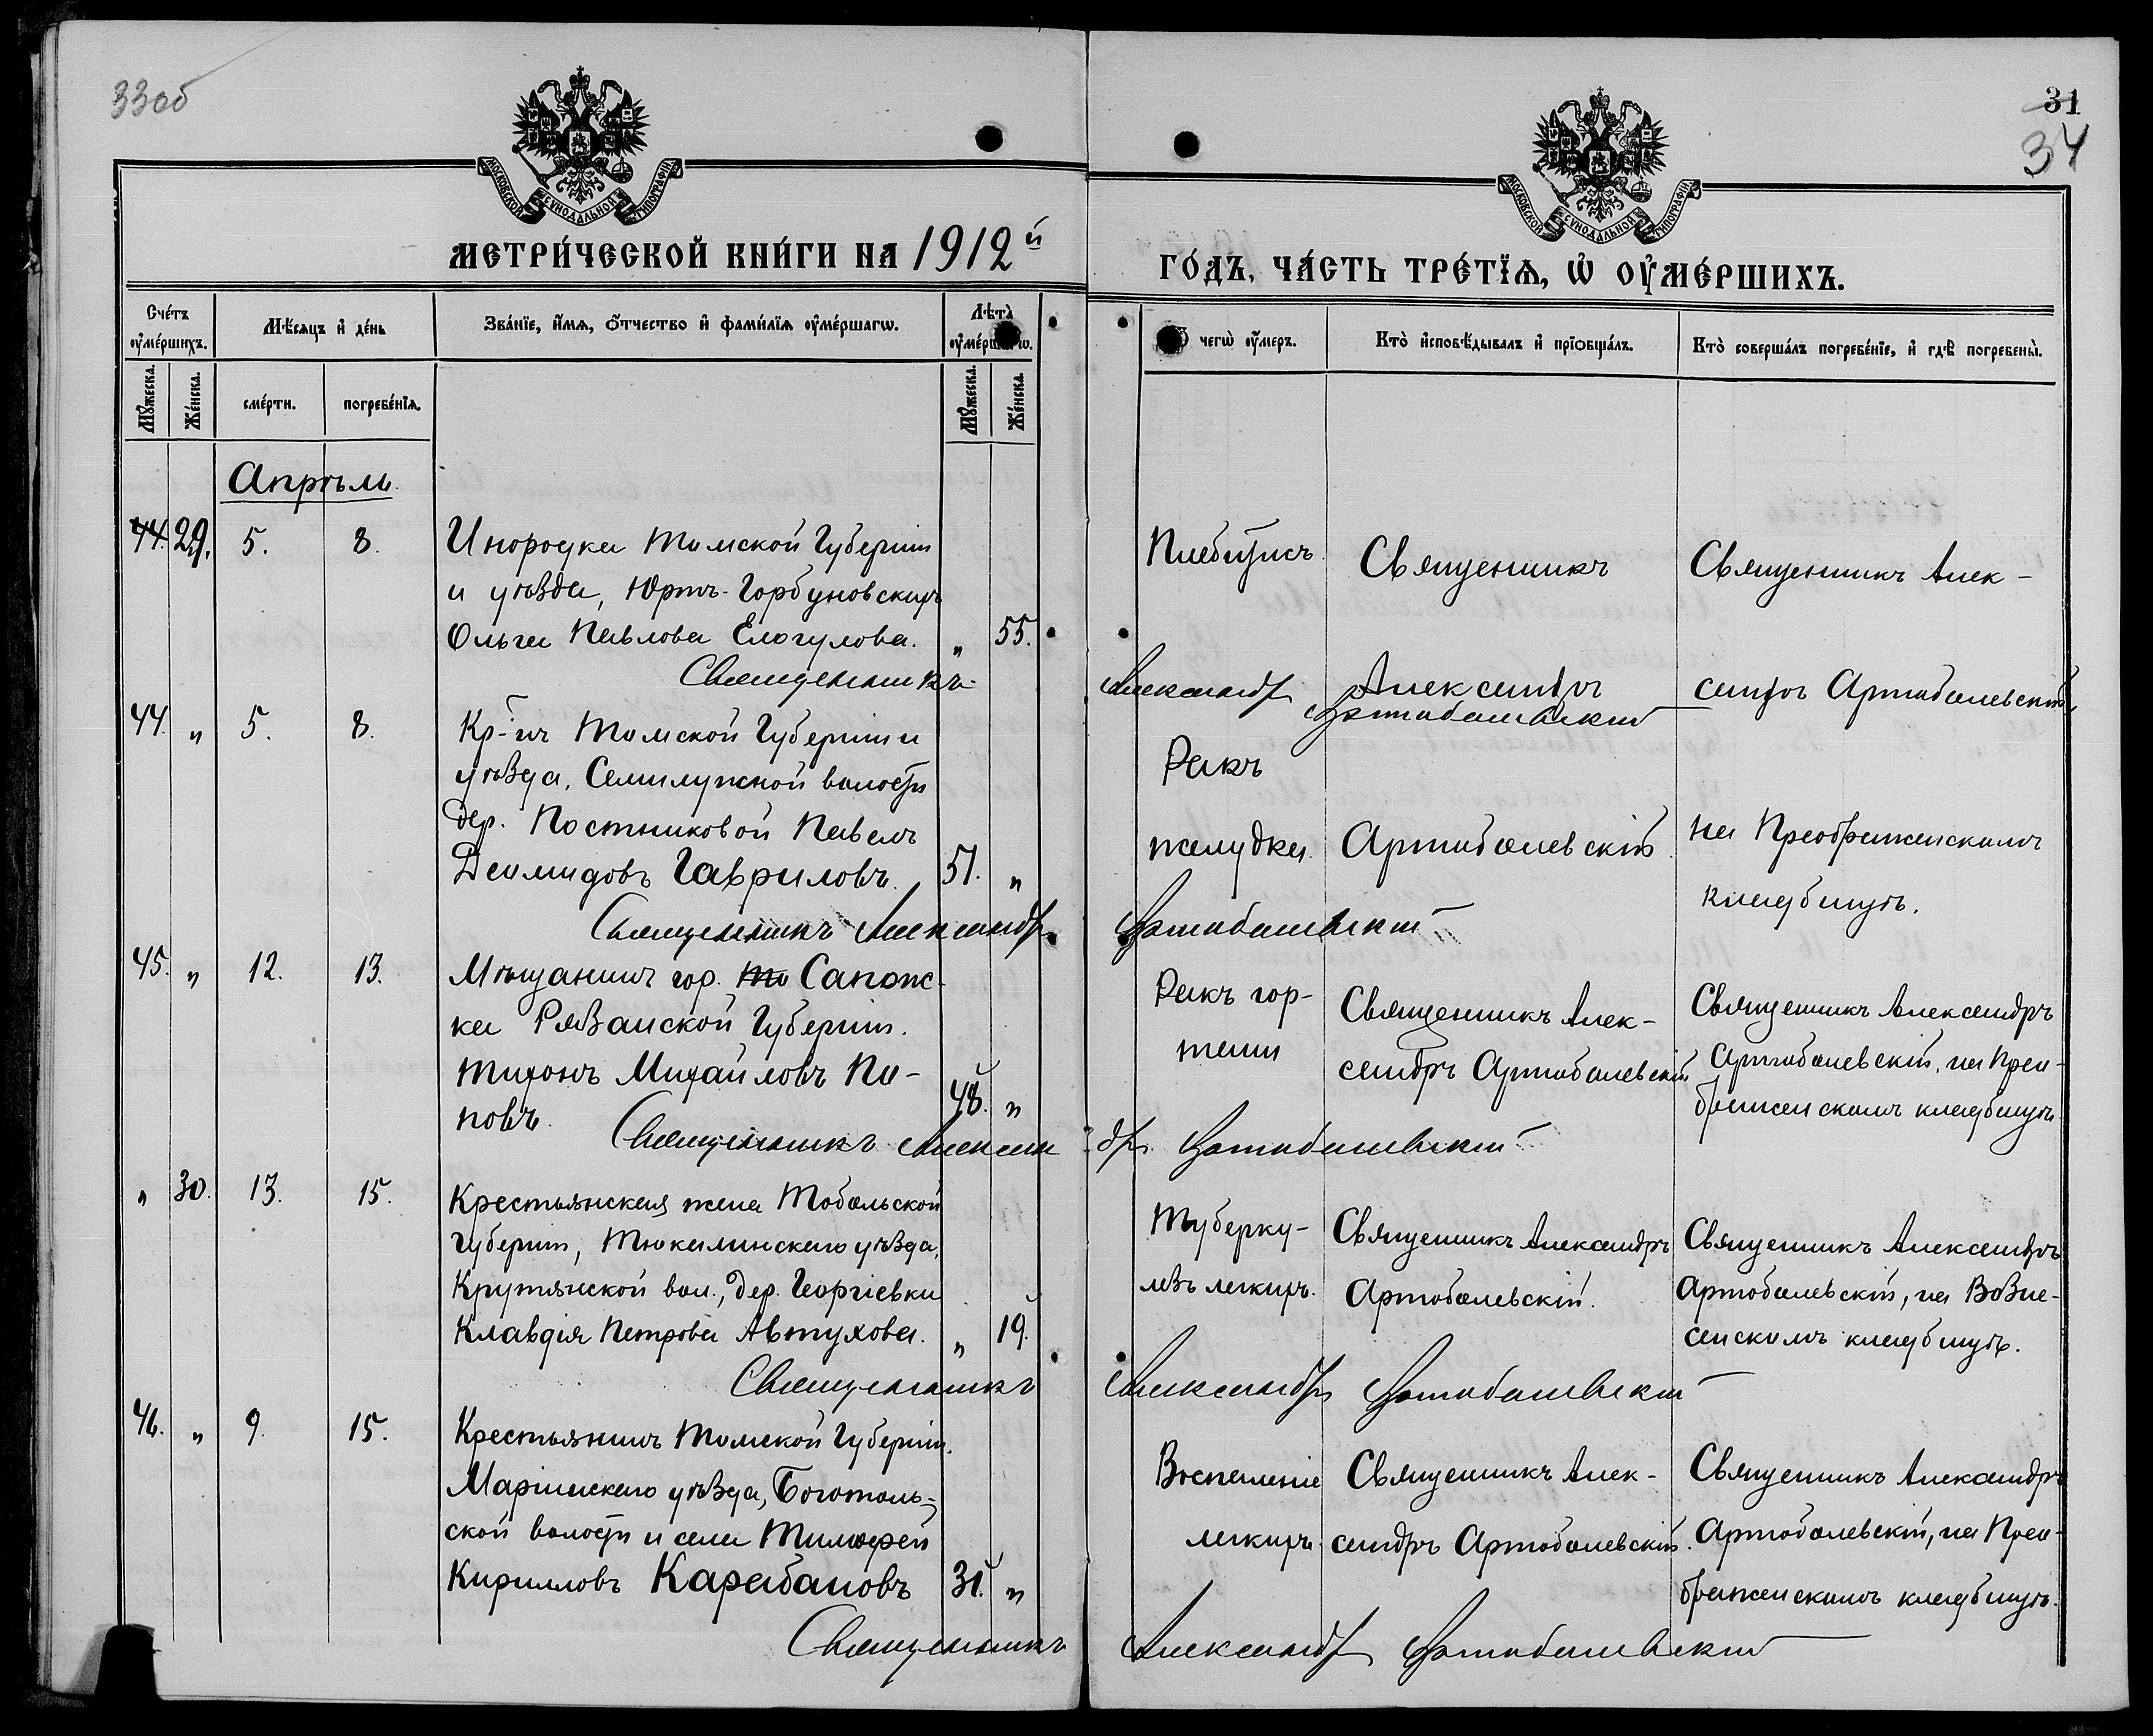 33об
31
34
МОСКОВСКОЙ СѴНОДАЛЬНОЙ ТИПОГРАФІИ
МОСКОВСКОЙ СѴНОДАЛЬНОЙ ТИПОГРАФІИ
МЕТРИ́ЧЕСКОЙ КНИ́ГИ НА 1912й
ГО́ДЪ, ЧА́СТЬ ТРЕ́ТЇѦ, Ѡ҆ ОУ҆МЕ́РШИХЪ.
Сче́тъ оу҆ме́ршихъ.
Мѣ́сяцъ и҆ де́нь
Зва́нїе, и҆́мѧ, ѻ҆́тчество и҆ фами́лїѧ оу҆ме́ршагѡ.
Лѣ́та оу҆ме́ршагѡ.
чегѡ̀ оу҆́меръ.
Кто̀ и҆сповѣ́дывалъ и҆ прїѡбща́лъ.
Кто̀ соверша́лъ погребе́нїе, и҆ гдѣ̀ погребены̀.
Мꙋ́жеска.
Же́нска.
сме́рти.
погребе́нїѧ.
Мꙋ́жеска.
Же́нска.
Апрѣль.
44. 29. 5. 8.
Инородка Томской Губерніи
и уѣзда, Юртъ-Горбуновскихъ
Ольга Павлова Елогулова. „ 55.
Священникъ
Священникъ Алек-
Священникъ Александръ Артоболевскій
сандръ Артоболевскій,
44. „ 5. 8.
Кр-нъ Томской Губерніи и
уѣзда, Семилужной волости
дер. Постниковой Павелъ
Деомидовъ Гавриловъ. 51. „
Ракъ
желудка.
Артоболевскій.
на Преображенскомъ
кладбищѣ.
Священникъ Александръ Артоболевскій
45. „ 12. 13.
Мѣщанинъ гор. То Сапож-
ка Рязанской Губерніи.
Тихонъ Михайловъ По-
повъ. 48. „
Ракъ гор-
тани
Священникъ Алек-
сандръ Артоболевскій
Священникъ Александръ
Артоболевскій, на Прео-
браженскомъ кладбищѣ.
Священникъ Александръ Артоболевскій
„ 30. 13. 15.
Крестьянская жена Тобольской
Губерніи, Тюкалинскаго уѣзда,
Крутянской вол., дер. Георгіевки
Клавдія Петрова Автухова. „ 19.
Туберку-
лезъ легкихъ.
Священникъ Александръ
Артоболевскій.
Священникъ Александръ
Артоболевскій, на Возне-
сенскомъ кладбищѣ.
Священникъ Александръ Артоболевскій
46. „ 9. 15.
Крестьянинъ Томской Губерніи.
Маріинскаго уѣзда, Боготоль-
ской волости и села Тимофей
Кирилловъ Карабановъ 31. „
Воспаленіе
легкихъ.
Священникъ Алек-
сандръ Артоболевскій.
Священникъ Александръ
Артоболевскій, на Прео-
браженскомъ кладбищѣ.
Священникъ Александръ Артоболевскій